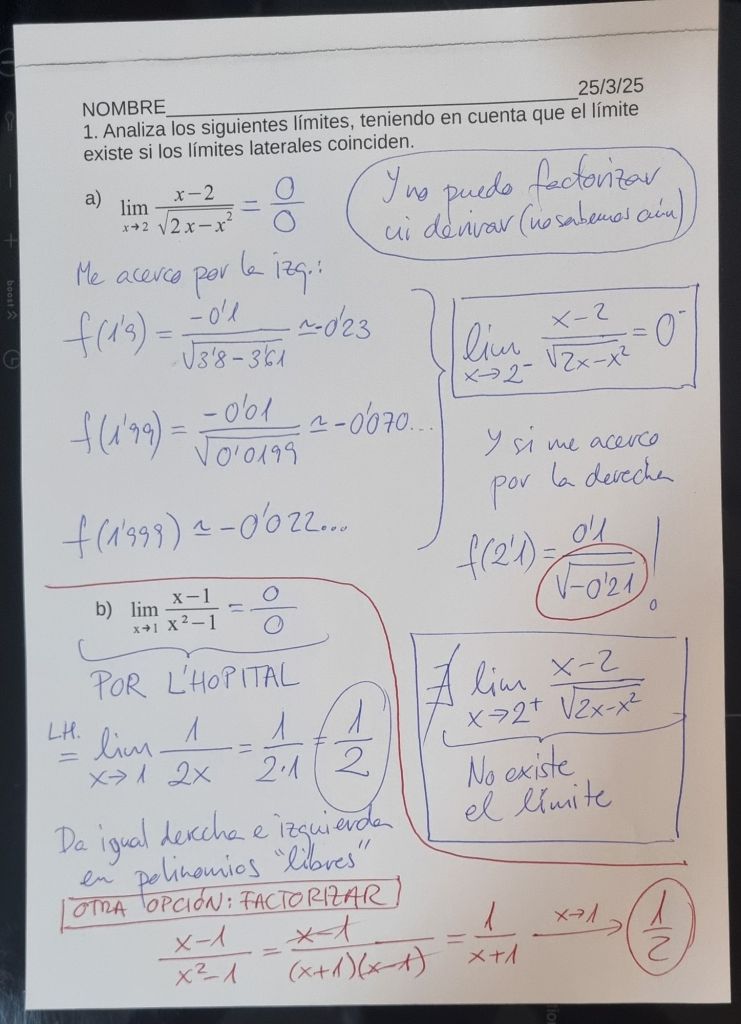 NOMBRE 25/3/25
1. Analiza los siguientes límites, teniendo en cuenta que el límite
existe si los límites laterales coinciden.
a) lim x→2 (x−2)/√(2x−x²) = 0/0
Y no puedo factorizar
ni derivar (no sabemos aún)
Me acerco por la izq.:
f(1'9) = −0'1/√(3'8−3'61) ≃ −0'23
f(1'99) = −0'01/√(0'0199) ≃ −0'070...
f(1'999) ≃ −0'022...
lim x→2⁻ (x−2)/√(2x−x²) = 0⁻
Y si me acerco
por la derecha
f(2'1) = 0'1/√(−0'21) !
∄ lim x→2⁺ (x−2)/√(2x−x²)
No existe
el límite
b) lim x→1 (x−1)/(x²−1) = 0/0
POR L'HOPITAL
LH.
= lim x→1 1/(2x) = 1/(2·1) = 1/2
Da igual derecha e izquierda
en polinomios "libres"
OTRA OPCIÓN: FACTORIZAR
(x−1)/(x²−1) = (x−1)/((x+1)(x−1)) = 1/(x+1) x→1 → 1/2
boost